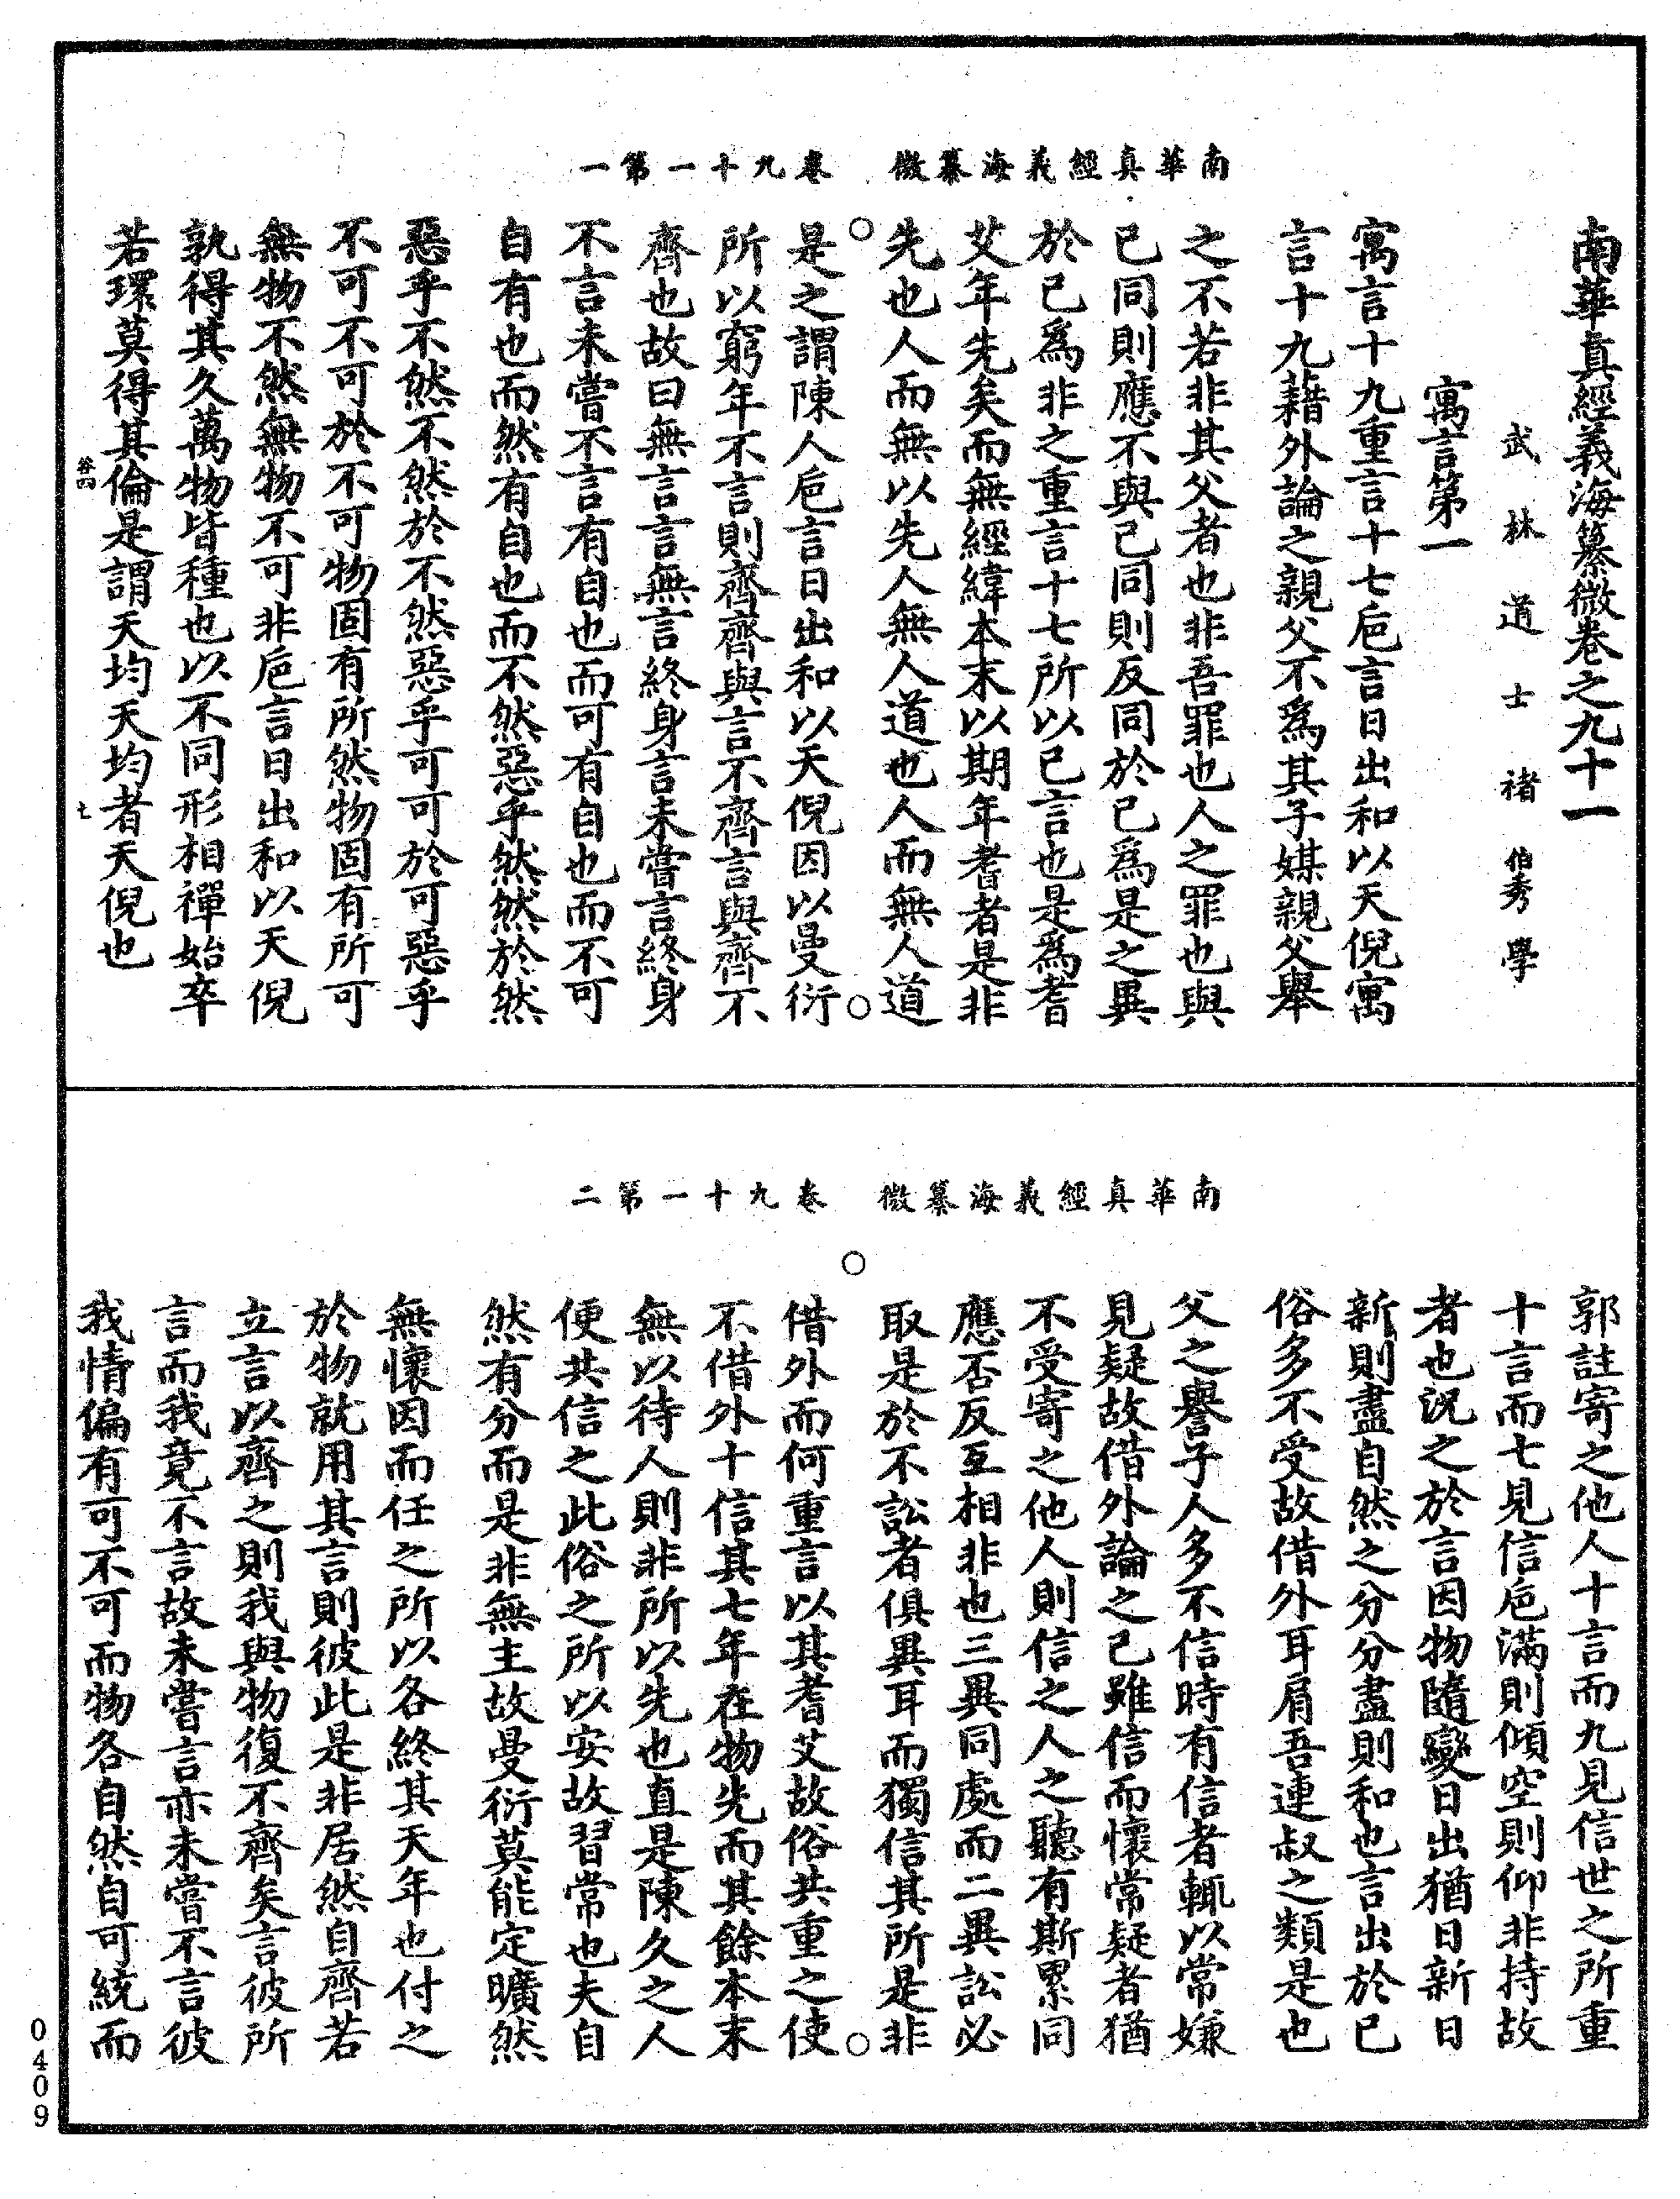 南華真經義海纂微　卷九十一第一
南華真經義海纂微卷之九十一
武林道士褚伯秀學
寓言第一
寓言十九重言十七巵言日出和以天倪寓
言十九藉外論之親父不爲其子媒親父舉
之不若非其父者也非吾罪也人之罪也與
已同則應不與已同則反同於已爲是之異
於已爲非之重言十七所以已言也是爲耆
艾年先矣而無經緯本末以期年耆者是非
先也人而無以先人無人道也人而無人道
是之謂陳人巵言日出和以天倪因以曼衍
所以窮年不言則齊齊與言不齊言與齊不
齊也故曰無言言無言終身言未嘗言終身
不言未嘗不言有自也而可有自也而不可
自有也而然有自也而不然惡乎然然於然
惡乎不然不然於不然惡乎可可於可惡乎
不可不可於不可物固有所然物固有所可
無物不然無物不可非巵言日出和以天倪
孰得其久萬物皆種也以不同形相禪始卒
若環莫得其倫是謂天均天均者天倪也
七
南華真經義海纂微　卷九十一第二
郭註寄之他人十言而九見信世之所重
十言而七見信巵滿則傾空則仰非持故
者也況之於言因物隨變日出猶日新日
新則盡自然之分分盡則和也言出於已
俗多不受故借外耳肩吾連叔之類是也
父之譽子人多不信時有信者輒以常嫌
見疑故借外論之已雖信而懷常疑者猶
不受寄之他人則信之人之聽有斯累同
應否反互相非也三異同處而二異訟必
取是於不訟者俱異耳而獨信其所是非
借外而何重言以其耆艾故俗共重之使
不借外十信其七年在物先而其餘本末
無以待人則非所以先也直是陳久之人
便共信之此俗之所以安故習常也夫自
然有分而是非無主故曼衍莫能定曠然
無懷因而任之所以各終其天年也付之
於物就用其言則彼此是非居然自齊若
立言以齊之則我與物復不齊矣言彼所
言而我竟不言故未嘗言亦未嘗不言彼
我情偏有可不可而物各自然自可統而
0409